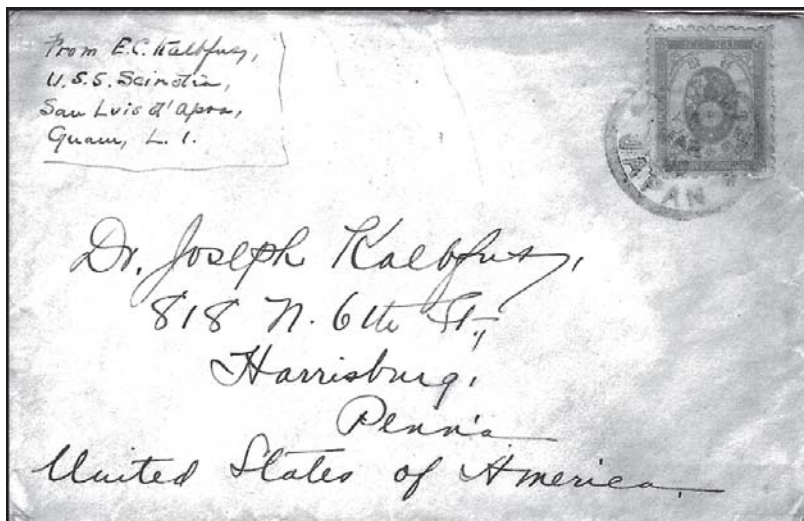 From E.C. Kalbfus,
U.S.S. Scindia,
San Luis d'Apra,
Guam, L. I.
JAPAN
Dr. Joseph Kalbfus,
818 N. 6th St.,
Harrisburg,
Penn'a
United States of America.